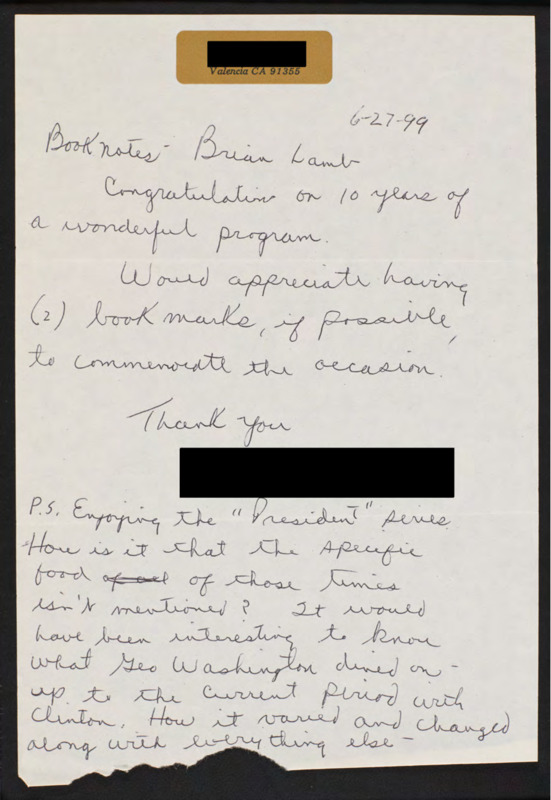 Valencia CA 91355
6-27-99
Booknotes - Brian Lamb
Congratulations on 10 years of
a wonderful program.
Would appreciate having
(2) book marks, if possible,
to commemorate the occasion.
Thank you
P.S. Enjoying the "President" series
How is it that the specific
food of those times
isn't mentioned? It would
have been interesting to know
what Geo Washington dined on -
up to the current period with
Clinton. How it varied and changed
along with everything else -